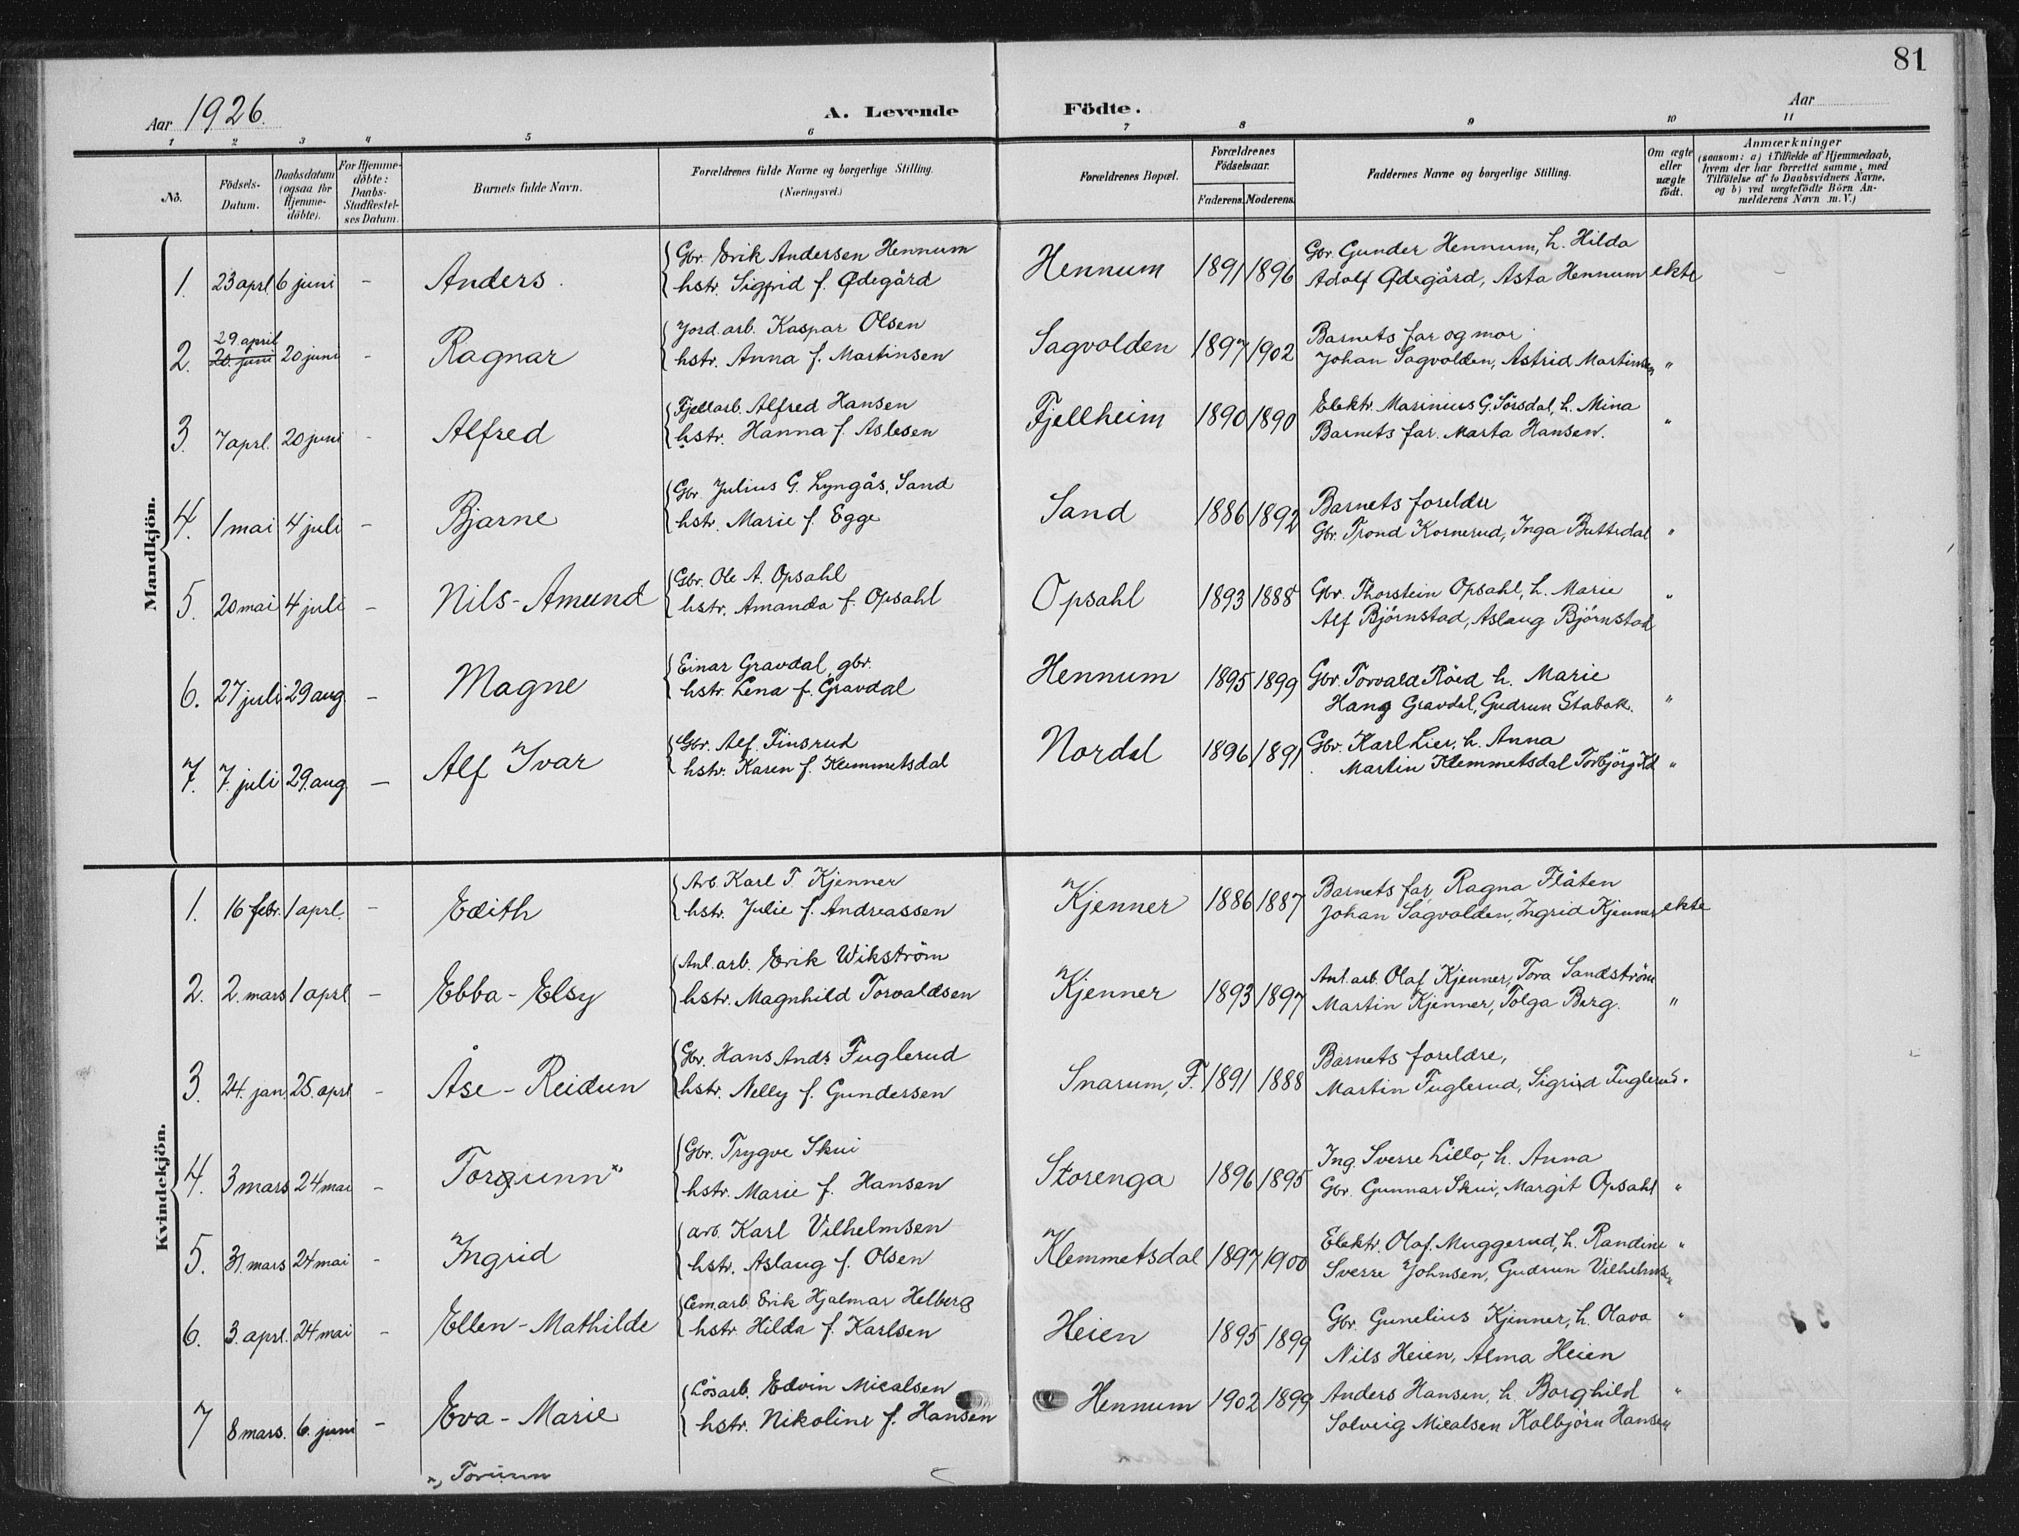 81
Aar 1926.
A. Levende Födte.
Aar
1 2 3 4 5 6 7 8 9 10 11
No.
Födsels-Datum.
Daabsdatum (ogsaa for Hjemme-döbte).
For Hjemme-döbte: Daabs-Stadfæstel-ses Datum.
Barnets fulde Navn.
Forældrenes fulde Navne og borgerlige Stilling. (Næringsvei.)
Forældrenes Bopæl.
Forældrenes Födselsaar.
Faderens. Moderens.
Faddernes Navne og borgerlige Stilling.
Om ægte eller uægte födt.
Anmærkninger
(saasom: a) i Tilfælde af Hjemmedaab,
hvem der har forrettet samme, med
Tilföielse af to Daabsvidners Navne,
og b) ved uægtefödte Börn An-
melderens Navn m. V.)
Mandkjön.
Gbr. Erik Andersen Hennum
Gbr. Gunder Hennum, h. Hilda
1. 23 aprl. 6 juni - Anders. hstr. Sigfrid f. Ødegård Hennum 1891 1896 Adolf Ødegård, Asta Hennum ekte -
29 april Jord.arb. Kaspar Olsen Barnets far og mor
2. 20. juni 20 juni - Ragnar hstr. Anna f. Martinsen Sagvolden 1897 1902 Johan Sagvolden, Astrid Martinsen "
Fjellarb. Alfred Hansen Elektr. Marinius G. Sörsdal, h. Mina
3 7 aprl. 20 juni - Alfred hstr. Hanna f. Aslesen Fjellheim 1890 1890 Barnets far. Marta Hansen. "
Gbr. Julius G. Lyngås, Sand Barnets foreldre
4. 1 mai 4 juli - Bjarne hstr. Marie f. Egge Sand 1886 1892 Gbr. Trond Kornerud, Inga Buttedal "
Gbr. Ole A. Opsahl Gbr. Thorstein Opsahl, h. Marie
5. 20 mai 4 juli - Nils-Amund hstr. Amanda f. Opsahl Opsahl 1893 1888 Alf Björnstad, Aslaug Björnstad "
Einar Gravdal, gbr. Gbr. Torvald Röed h. Marie
6. 27 juli 29 aug - Magne hstr. Lena f. Gravdal Hennum 1895 1899 Hans Gravdal, Gudrun Stabak. "
Gbr. Alf. Finsrud Gbr. Karl Lier, h. Anna
7. 7. juli 29. aug - Alf Ivar hstr. Karen f. Klemmetsdal Nordal 1896 1891 Martin Klemmetsdal Torbjörg Kd "
Kvindekjön.
Arb. Karl T. Kjenner Barnets far, Ragna Flåten
1. 16 febr. 1 aprl. - Edith hstr. Julie f. Andreassen Kjenner 1886 1887 Johan Sagvolden, Ingrid Kjenner ekte
Anl.arb. Erik Wikström Anl.arb. Olaf Kjenner, Tora Sandström
2. 2. mars 1 aprl - Ebba-Elsy hstr. Magnhild Torvaldsen Kjenner 1893 1897 Martin Kjenner, Tolga Berg. "
Gbr. Hans Andr. Fuglerud Barnets foreldre,
3. 24. jan. 25. aprl - Åse-Reidun hstr. Nelly f. Gundersen Snarum, F. 1891 1888 Martin Fuglerud, Sigrid Fuglerud. "
Gbr. Trygve Skui Ing. Sverre Lillo, h. Anna
4. 3 mars 24 mai - Torgunn x) hstr. Marie f. Hansen Storenga 1896 1895 Gbr. Gunnar Skui, Margit Opsahl "
arb. Karl Vilhelmsen Elektr. Olaf Muggerud, h. Randine "
5. 31. mars 24 mai - Ingrid hstr. Aslaug f. Olsen Klemmetsdal 1897 1900 Sverre Johnsen, Gudrun Vilhelmsen
Cemarb. Erik Hjalmar Helberg Gbr. Gunelius Kjenner, h. Olava "
6. 3. aprl. 24. mai - Ellen-Mathilde hstr. Hilda f. Karlsen Heien 1895 1899 Nils Heien, Alma Heien
Lösarb. Edvin Micalsen Anders Hansen, h. Borghild "
7 8 mars. 6. juni - Eva-Marie hstr. Nikoline f. Hansen Hennum 1902 1899 Solveig Micalsen Kolbjörn Hansen
x) Torunn